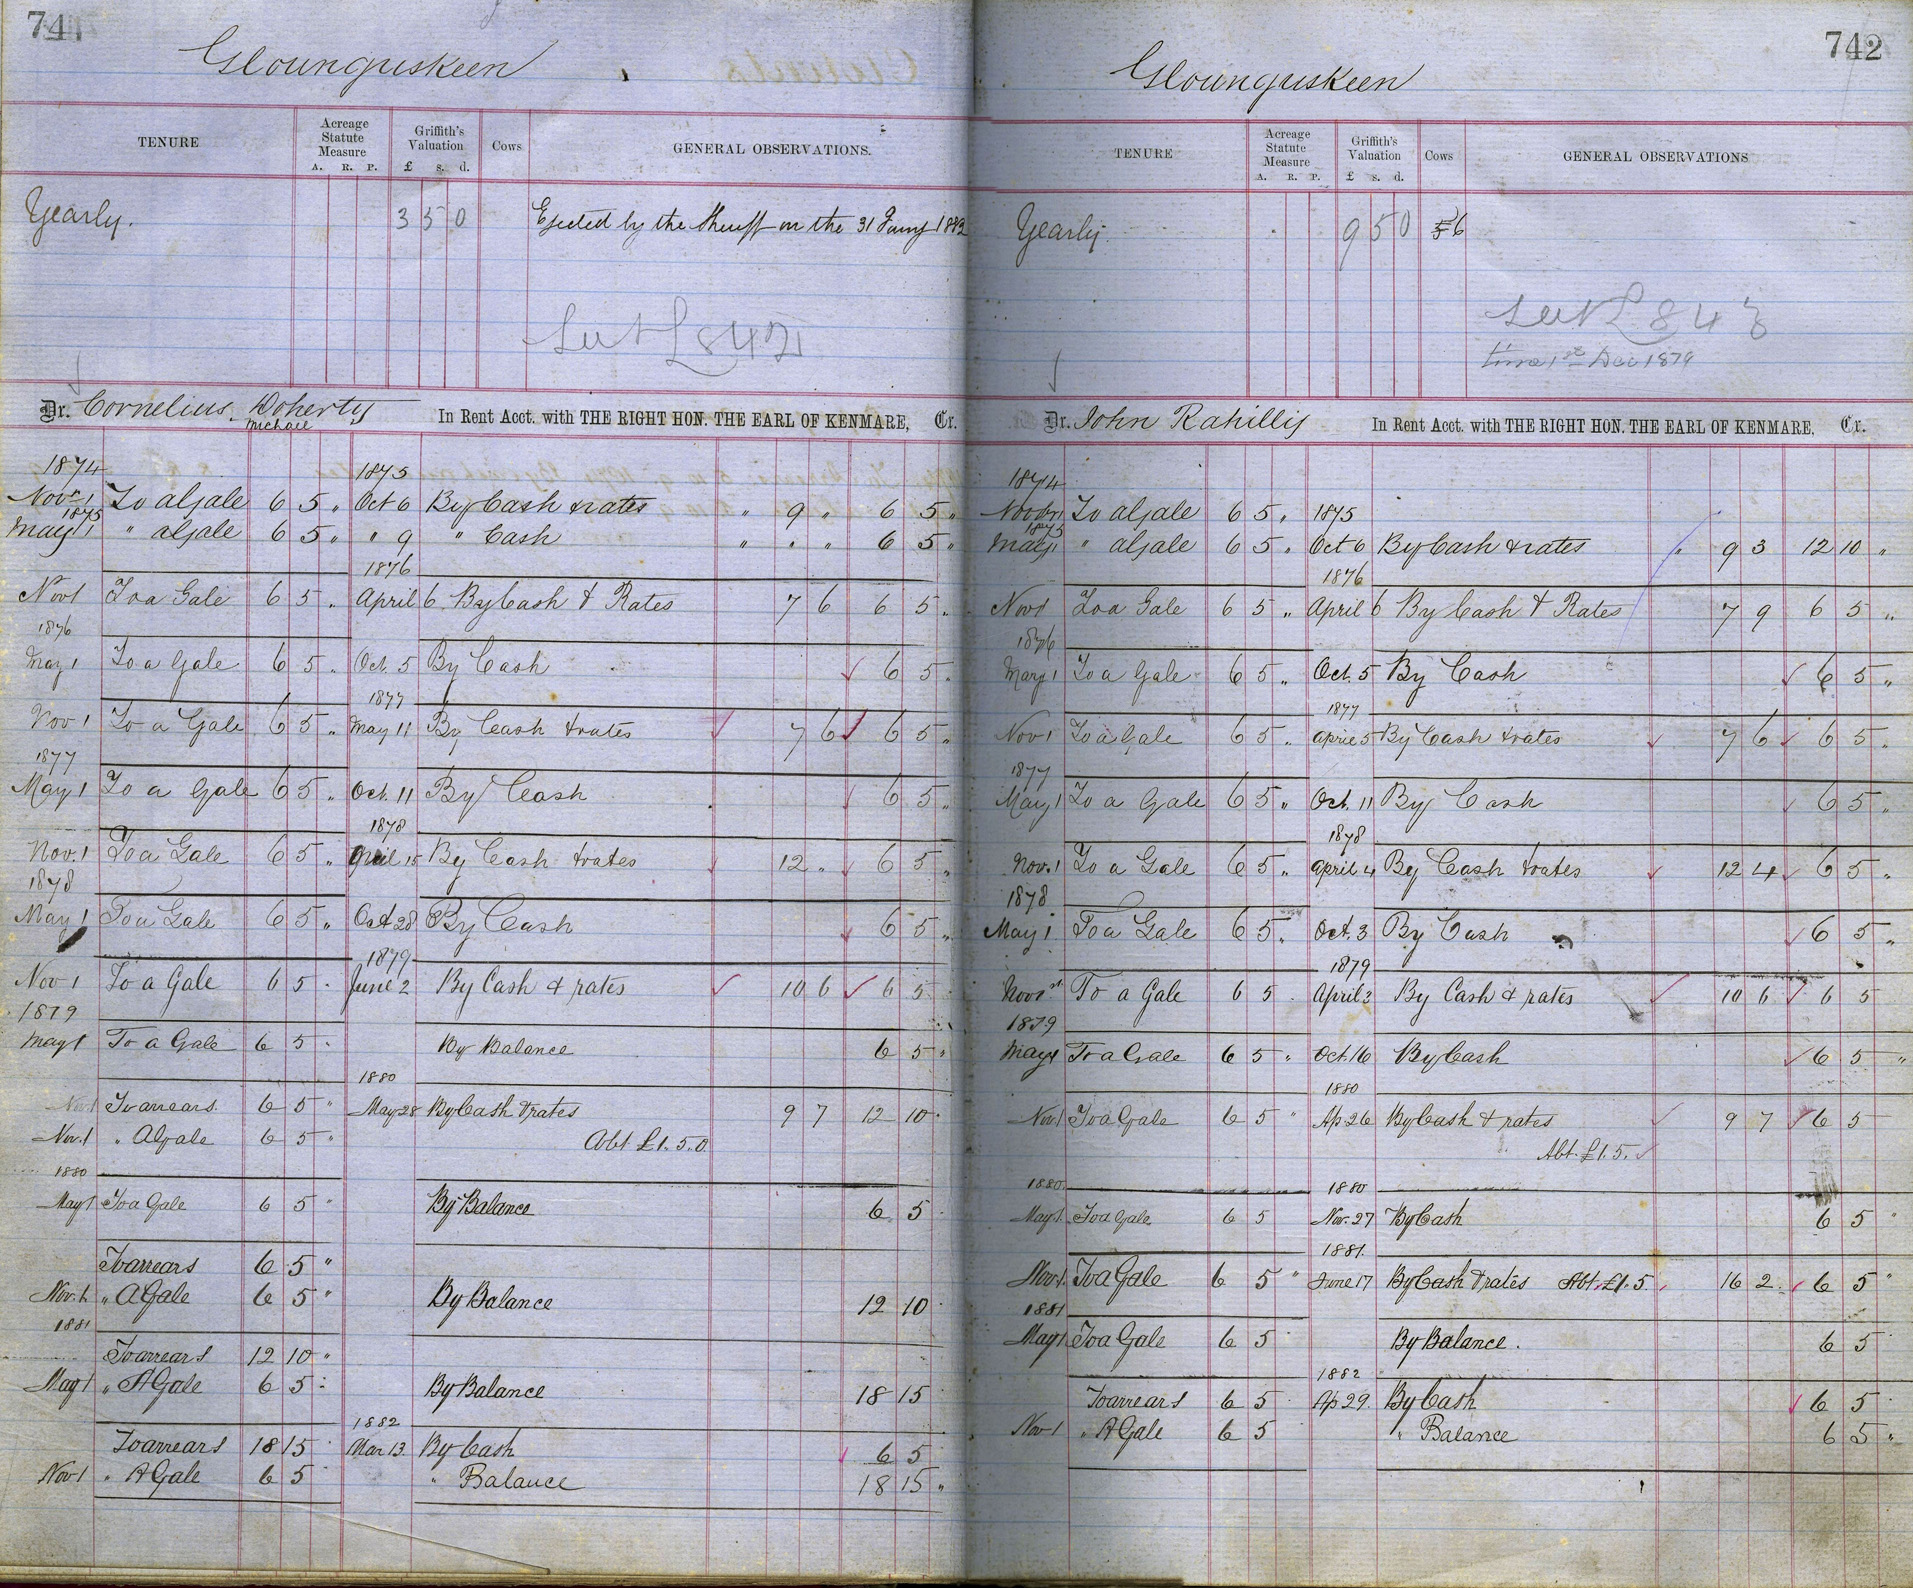 741
Glounguskeen
TENURE
Acreage Statute Measure
A. R. P.
Griffith's Valuation
£ s. d.
Cows
GENERAL OBSERVATIONS.
Yearly. 3 5 0 Ejected by the Sheriff on the 31
Dr. Cornelius Doherty In Rent Acct. with THE RIGHT HON. THE EARL OF KENMARE, Cr.
Michael
1874 1875
Novr 1 To a Gale 6 5 " Oct 6 By Cash & rates " 9 " 6 5 "
1875
May 1 " a Gale 6 5 " " 9 " Cash " " " 6 5 "
1876
Nov 1 To a Gale 6 5 " April 6 By Cash & Rates 7 6 6 5 "
1876
May 1 To a Gale 6 5 " Oct. 5 By Cash 6 5 "
1877
Nov 1 To a Gale 6 5 " May 11 By Cash & rates 7 6 6 5 "
1877
May 1 To a Gale 6 5 " Oct. 11 By Cash 6 5 "
1878
Nov. 1 To a Gale 6 5 " April 15 By Cash & rates 12 " 6 5 "
1878
May 1 To a Gale 6 5 " Oct 28 By Cash 6 5 "
1879
Nov 1 To a Gale 6 5 " June 2 By Cash & rates 10 6 6 5
1879
May 1 To a Gale 6 5 " By Balance 6 5 "
1880
Nov 1 To arrears 6 5 " May 28 By Cash & rates 9 7 12 10 "
Nov. 1 " A Gale 6 5 " Abt £1.5.0
1880
May 1 To a Gale 6 5 " By Balance 6 5
To arrears 6 5 "
Nov. 1 " A Gale 6 5 " By Balance 12 10
1881
To arrears 12 10 "
May 1 " A Gale 6 5 " By Balance 18 15
1882
To arrears 18 15 Mar 13 By Cash 6 5
Nov 1 " A Gale 6 5 " Balance 18 15 "
742
Glounguskeen
TENURE
Acreage Statute Measure
A. R. P.
Griffith's Valuation
£ s. d.
Cows
GENERAL OBSERVATIONS
Yearly. 9 5 0 6
1st Dec 1879
Dr. John Rahilly In Rent Acct. with THE RIGHT HON. THE EARL OF KENMARE, Cr.
1874
Novr 1 To a Gale 6 5 " 1875
1875
May 1 " a Gale 6 5 " Oct 6 By Cash & rates " 9 3 12 10 "
1876
Nov 1 To a Gale 6 5 " April 6 By Cash & Rates 7 9 6 5 "
1876
May 1 To a Gale 6 5 " Oct. 5 By Cash 6 5 "
1877
Nov 1 To a Gale 6 5 " April 5 By Cash & rates 7 6 6 5 "
1877
May 1 To a Gale 6 5 " Oct. 11 By Cash 6 5 "
1878
Nov. 1 To a Gale 6 5 " April 4 By Cash & rates 12 4 6 5 "
1878
May 1 To a Gale 6 5 " Oct. 3 By Cash 6 5 "
1879
Nov 1st To a Gale 6 5 April 3 By Cash & rates 10 6 6 5
1879
May 1 To a Gale 6 5 " Oct 16 By Cash 6 5 "
1880
Nov 1 To a Gale 6 5 " Ap 26 By Cash & rates 9 7 6 5
Abt. £1.5.
1880 1880
May 1 To a Gale 6 5 Nov. 27 By Cash 6 5 "
1881
Nov 1 To a Gale 6 5 " June 17 By Cash & rates Abt. £1.5. 16 2 6 5 "
1881
May 1 To a Gale 6 5 By Balance. 6 5
1882
To arrears 6 5 Ap 29 By Cash 6 5
Nov 1 " A Gale 6 5 " Balance 6 5 "